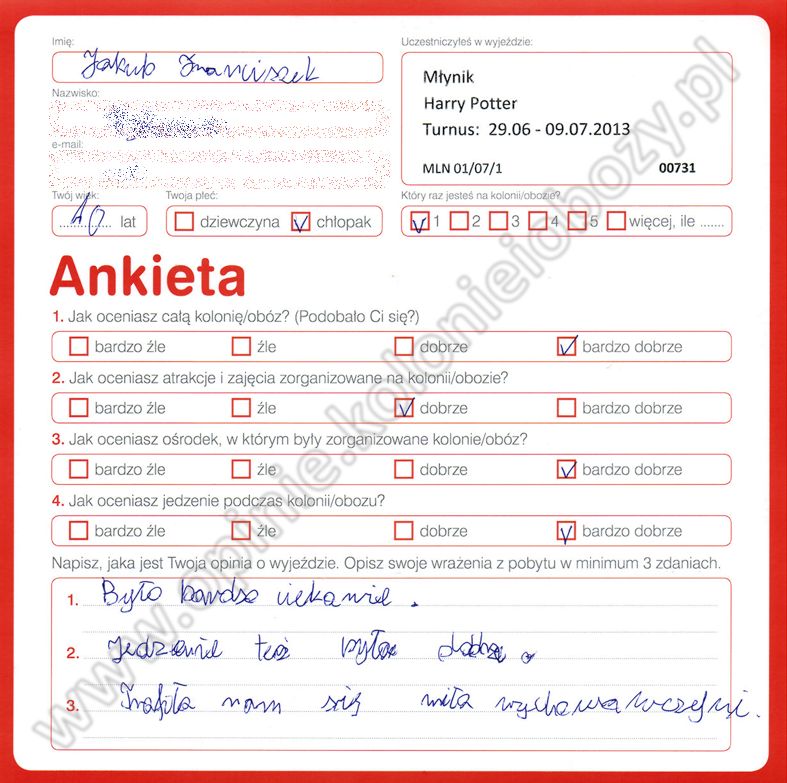 Imię:
Jakub Franciszek
Uczestniczyłeś w wyjeździe:
Młynik
Harry Potter
Turnus: 29.06 - 09.07.2013
MLN 01/07/1 00731
Nazwisko:
e-mail:
Twój wiek:
10 lat
Twoja płeć:
dziewczyna chłopak
Który raz jesteś na kolonii/obozie?
1 2 3 4 5 więcej, ile .......
Ankieta
1. Jak oceniasz całą kolonię/obóz? (Podobało Ci się?)
bardzo źle źle dobrze bardzo dobrze
2. Jak oceniasz atrakcje i zajęcia zorganizowane na kolonii/obozie?
bardzo źle źle dobrze bardzo dobrze
3. Jak oceniasz ośrodek, w którym były zorganizowane kolonie/obóz?
bardzo źle źle dobrze bardzo dobrze
4. Jak oceniasz jedzenie podczas kolonii/obozu?
bardzo źle źle dobrze bardzo dobrze
Napisz, jaka jest Twoja opinia o wyjeździe. Opisz swoje wrażenia z pobytu w minimum 3 zdaniach.
1. Było bardzo ciekawie.
2. Jedzenie też było dobre.
3. Trafiła nam się miła wychowawczyni.
www.opinie.kolonieiobozy.pl